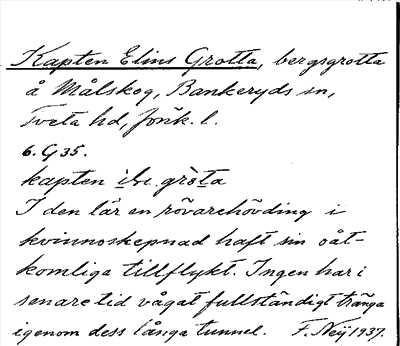 Kapten Elins Grotta, bergsgrotta
å Målskog, Bankeryds sn,
Tveta hd, Jönk. l.
6. G 35.
kapten grò̀ta
I den lär en rövarehövding i
kvinnoskepnad haft sin oåt-
komliga tillflykt. Ingen har i
senare tid vågat fullständigt tränga
igenom dess långa tunnel. F. Neij 1937.